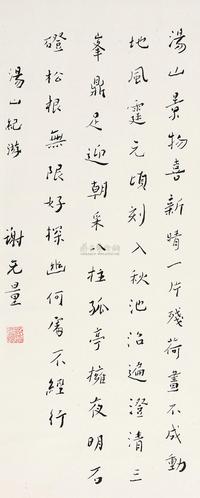 湯山景物喜新晴一片殘荷畫不成動
地風霆元頃刻入秋池沼遍澄清三
峯鼎足迎朝采八柱孤亭擁夜明石
磴松根無限好探幽何處不經行
湯山紀游 謝无量